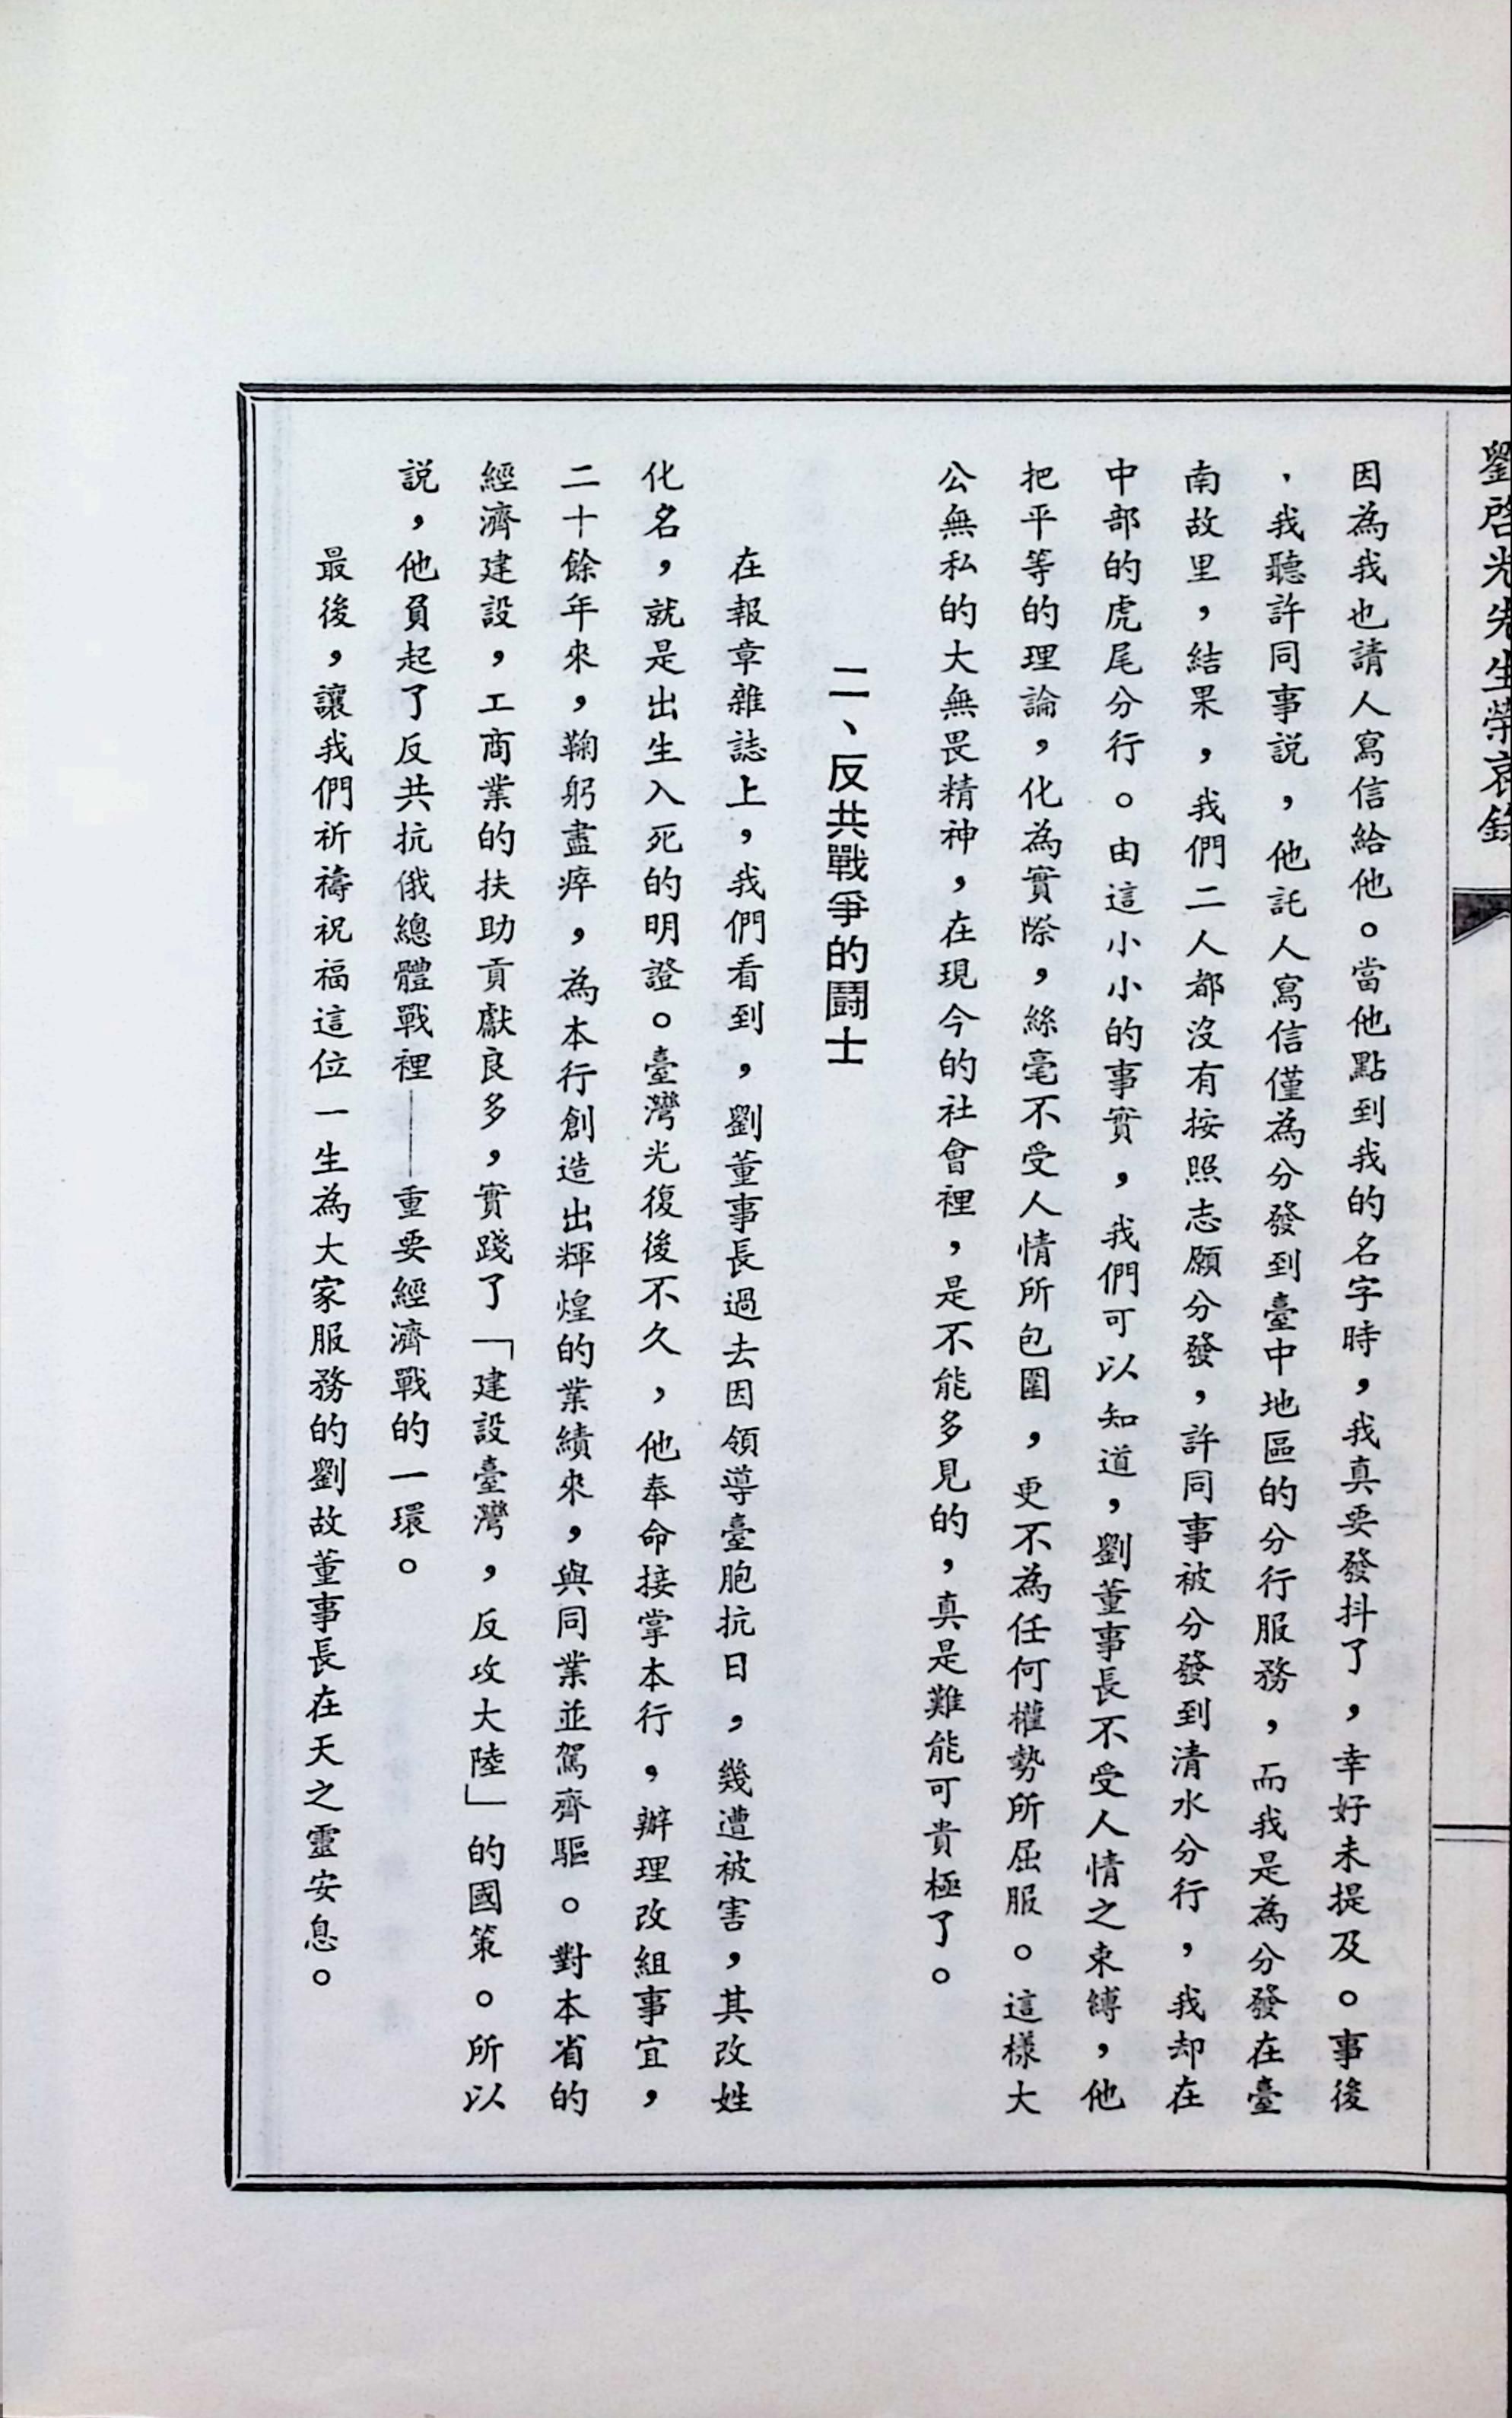 劉啓光先生榮哀錄
因為我也請人寫信給他。當他點到我的名字時，我真要發抖了，幸好未提及。事後
，我聽許同事説，他託人寫信僅為分發到臺中地區的分行服務，而我是為分發在臺
南故里，結果，我們二人都沒有按照志願分發，許同事被分發到清水分行，我却在
中部的虎尾分行。由這小小的事實，我們可以知道，劉董事長不受人情之束縛，他
把平等的理論，化為實際，絲毫不受人情所包圍，更不為任何權勢所屈服。這樣大
公無私的大無畏精神，在現今的社會裡，是不能多見的，真是難能可貴極了。
二、反共戰爭的鬪士
在報章雜誌上，我們看到，劉董事長過去因領導臺胞抗日，幾遭被害，其改姓
化名，就是出生入死的明證。臺灣光復後不久，他奉命接掌本行，辦理改組事宜，
二十餘年來，鞠躬盡瘁，為本行創造出輝煌的業績來，與同業並駕齊驅。對本省的
經濟建設，工商業的扶助貢獻良多，實踐了「建設臺灣，反攻大陸」的國策。所以
説，他負起了反共抗俄總體戰裡——重要經濟戰的一環。
最後，讓我們祈禱祝福這位一生為大家服務的劉故董事長在天之靈安息。